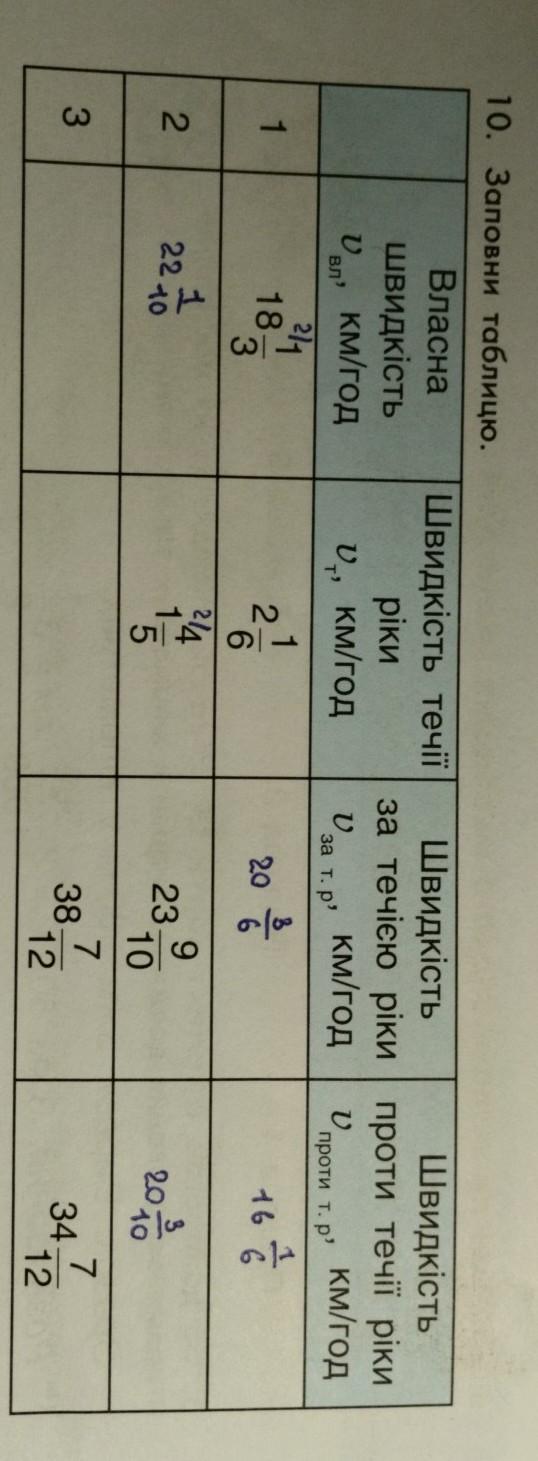 10. Заповни таблицю.
Власна швидкість v вл, км/год
Швидкість течії ріки v т, км/год
Швидкість за течією ріки v за т. р, км/год
Швидкість проти течії ріки v проти т. р, км/год
1 18 2/ 1/3 2 1/6 20 3/6 16 1/6
2 22 1/10 1 2/ 4/5 23 9/10 20 3/10
3 38 7/12 34 7/12